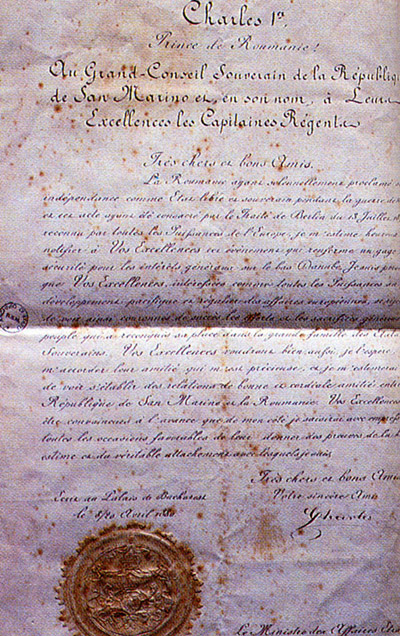 Charles 1er
Prince de Roumanie!
Au Grand-Conseil Souverain de la Républiq
de San Marino et, en son nom, à Leurs
Excellences les Capitaines Régents
Très chers et bons Amis.
La Roumanie ayant solennellement proclamé
indépendance comme État libre et souverain pendant la guerre
et cet acte ayant été consacré par le Traité de Berlin du 13 Juillet
reconnu par toutes les Puissances de l'Europe, je m'estime heure
notifier à Vos Excellences cet événement qui renferme un gag
sécurité pour les intérêts généraux sur le bas Danube.
que Vos Excellences, intéressées comme toutes les Puissances au
développement pacifique et régulier des affaires européennes,
de voir ainsi couronnés de succès les efforts et les sacrifices
peuple qui a reconquis sa place dans la grande famille des États
Souverains. Vos Excellences voudront bien aussi, je l'espère
m'accorder leur amitié qui m'est précieuse, et je m'estimerai
de voir s'établir des relations de bonne et cordiale amitié entre
République de San Marino et la Roumanie. Vos Excellences
être convaincues à l'avance que de mon côté je saisirai avec empress
toutes les occasions favorables de leur donner des preuves de la
estime et du véritable attachement avec lesquels je suis
Très chers et bons Amis
Votre sincère Ami
Écrit au Palais de Bucharest
le 8/20 Avril
Charles
Le Ministre des Affaires Étra